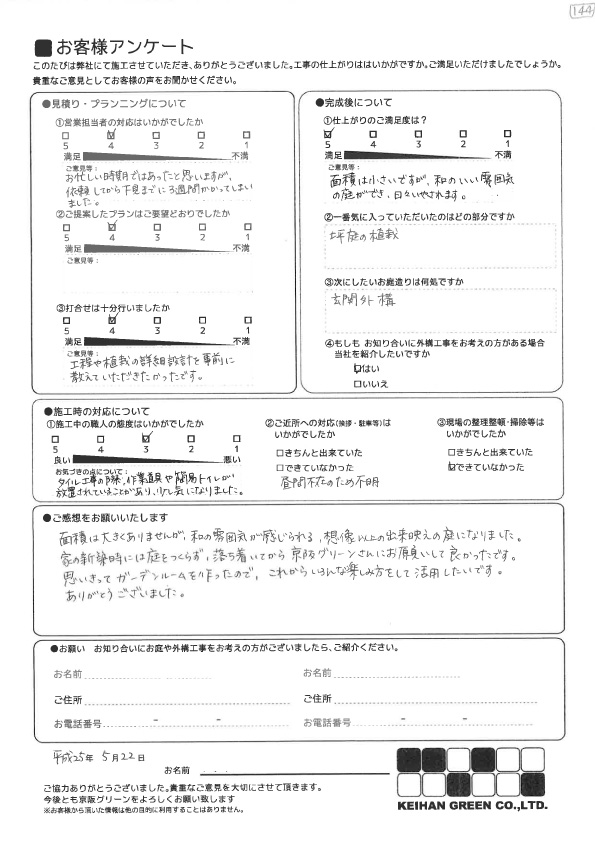 144
■お客様アンケート
このたびは弊社にて施工させていただき、ありがとうございました。工事の仕上がりはいかがですか。ご満足いただけましたでしょうか。
貴重なご意見としてお客様の声をお聞かせください。
●見積り・プランニングについて
①営業担当者の対応はいかがでしたか
5 4 3 2 1
満足 不満
ご意見等:
お忙しい時期ではあったと思いますが、
依頼してから下見までに3週間かかってしまい
ました。
②ご提案したプランはご要望どおりでしたか
5 4 3 2 1
満足 不満
ご意見等:
③打合せは十分行いましたか
5 4 3 2 1
満足 不満
ご意見等:
工程や植栽の詳細設計を事前に
教えていただきたかったです。
●完成後について
①仕上がりのご満足度は?
5 4 3 2 1
満足 不満
ご意見等:
面積は小さいですが、和のいい雰囲気
の庭ができ、日々いやされます。
②一番気に入っていただいたのはどの部分ですか
坪庭の植栽
③次にしたいお庭造りは何処ですか
玄関外構
④もしも お知り合いに外構工事をお考えの方がある場合
当社を紹介したいですか
□はい
□いいえ
●施工時の対応について
①施工中の職人の態度はいかがでしたか
5 4 3 2 1
良い 悪い
お気づきの点について:
タイル工事の際、作業道具や簡易トイレが
放置されていることがあり、少し気になりました。
②ご近所への対応(挨拶・駐車等)は
いかがでしたか
□きちんと出来ていた
□できていなかった
昼間不在のため不明
③現場の整理整頓・掃除等は
いかがでしたか
□きちんと出来ていた
□できていなかった
●ご感想をお願いいたします
面積は大きくありませんが、和の雰囲気が感じられる、想像以上の出来映えの庭になりました。
家の新築時には庭をつくらず、落ち着いてから京阪グリーンさんにお願いして良かったです。
思いきってガーデンルームを作ったので、これからいろんな楽しみ方をして活用したいです。
ありがとうございました。
●お願い お知り合いにお庭や外構工事をお考えの方がございましたら、ご紹介ください。
お名前 お名前
ご住所 ご住所
お電話番号 - - お電話番号 - -
平成25年 5月22日
お名前
ご協力ありがとうございました。貴重なご意見を大切にさせて頂きます。
今後とも京阪グリーンをよろしくお願い致します
※お客様から頂いた情報は他の目的に利用することはありません。
KEIHAN GREEN CO.,LTD.